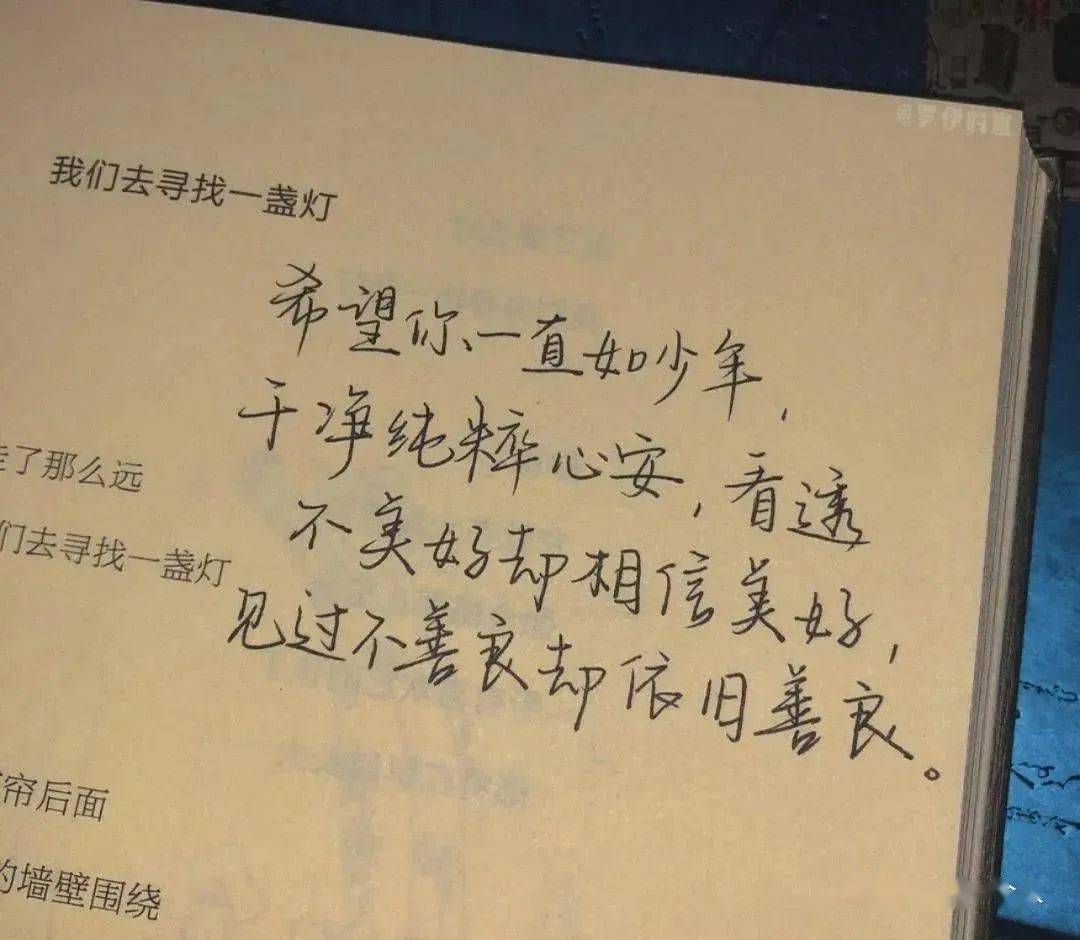 我们去寻找一盏灯
希望你一直如少年,
干净纯粹心安,看透
不美好却相信美好,
见过不善良却依旧善良。
走了那么远
们去寻找一盏灯
帘后面
的墙壁围绕